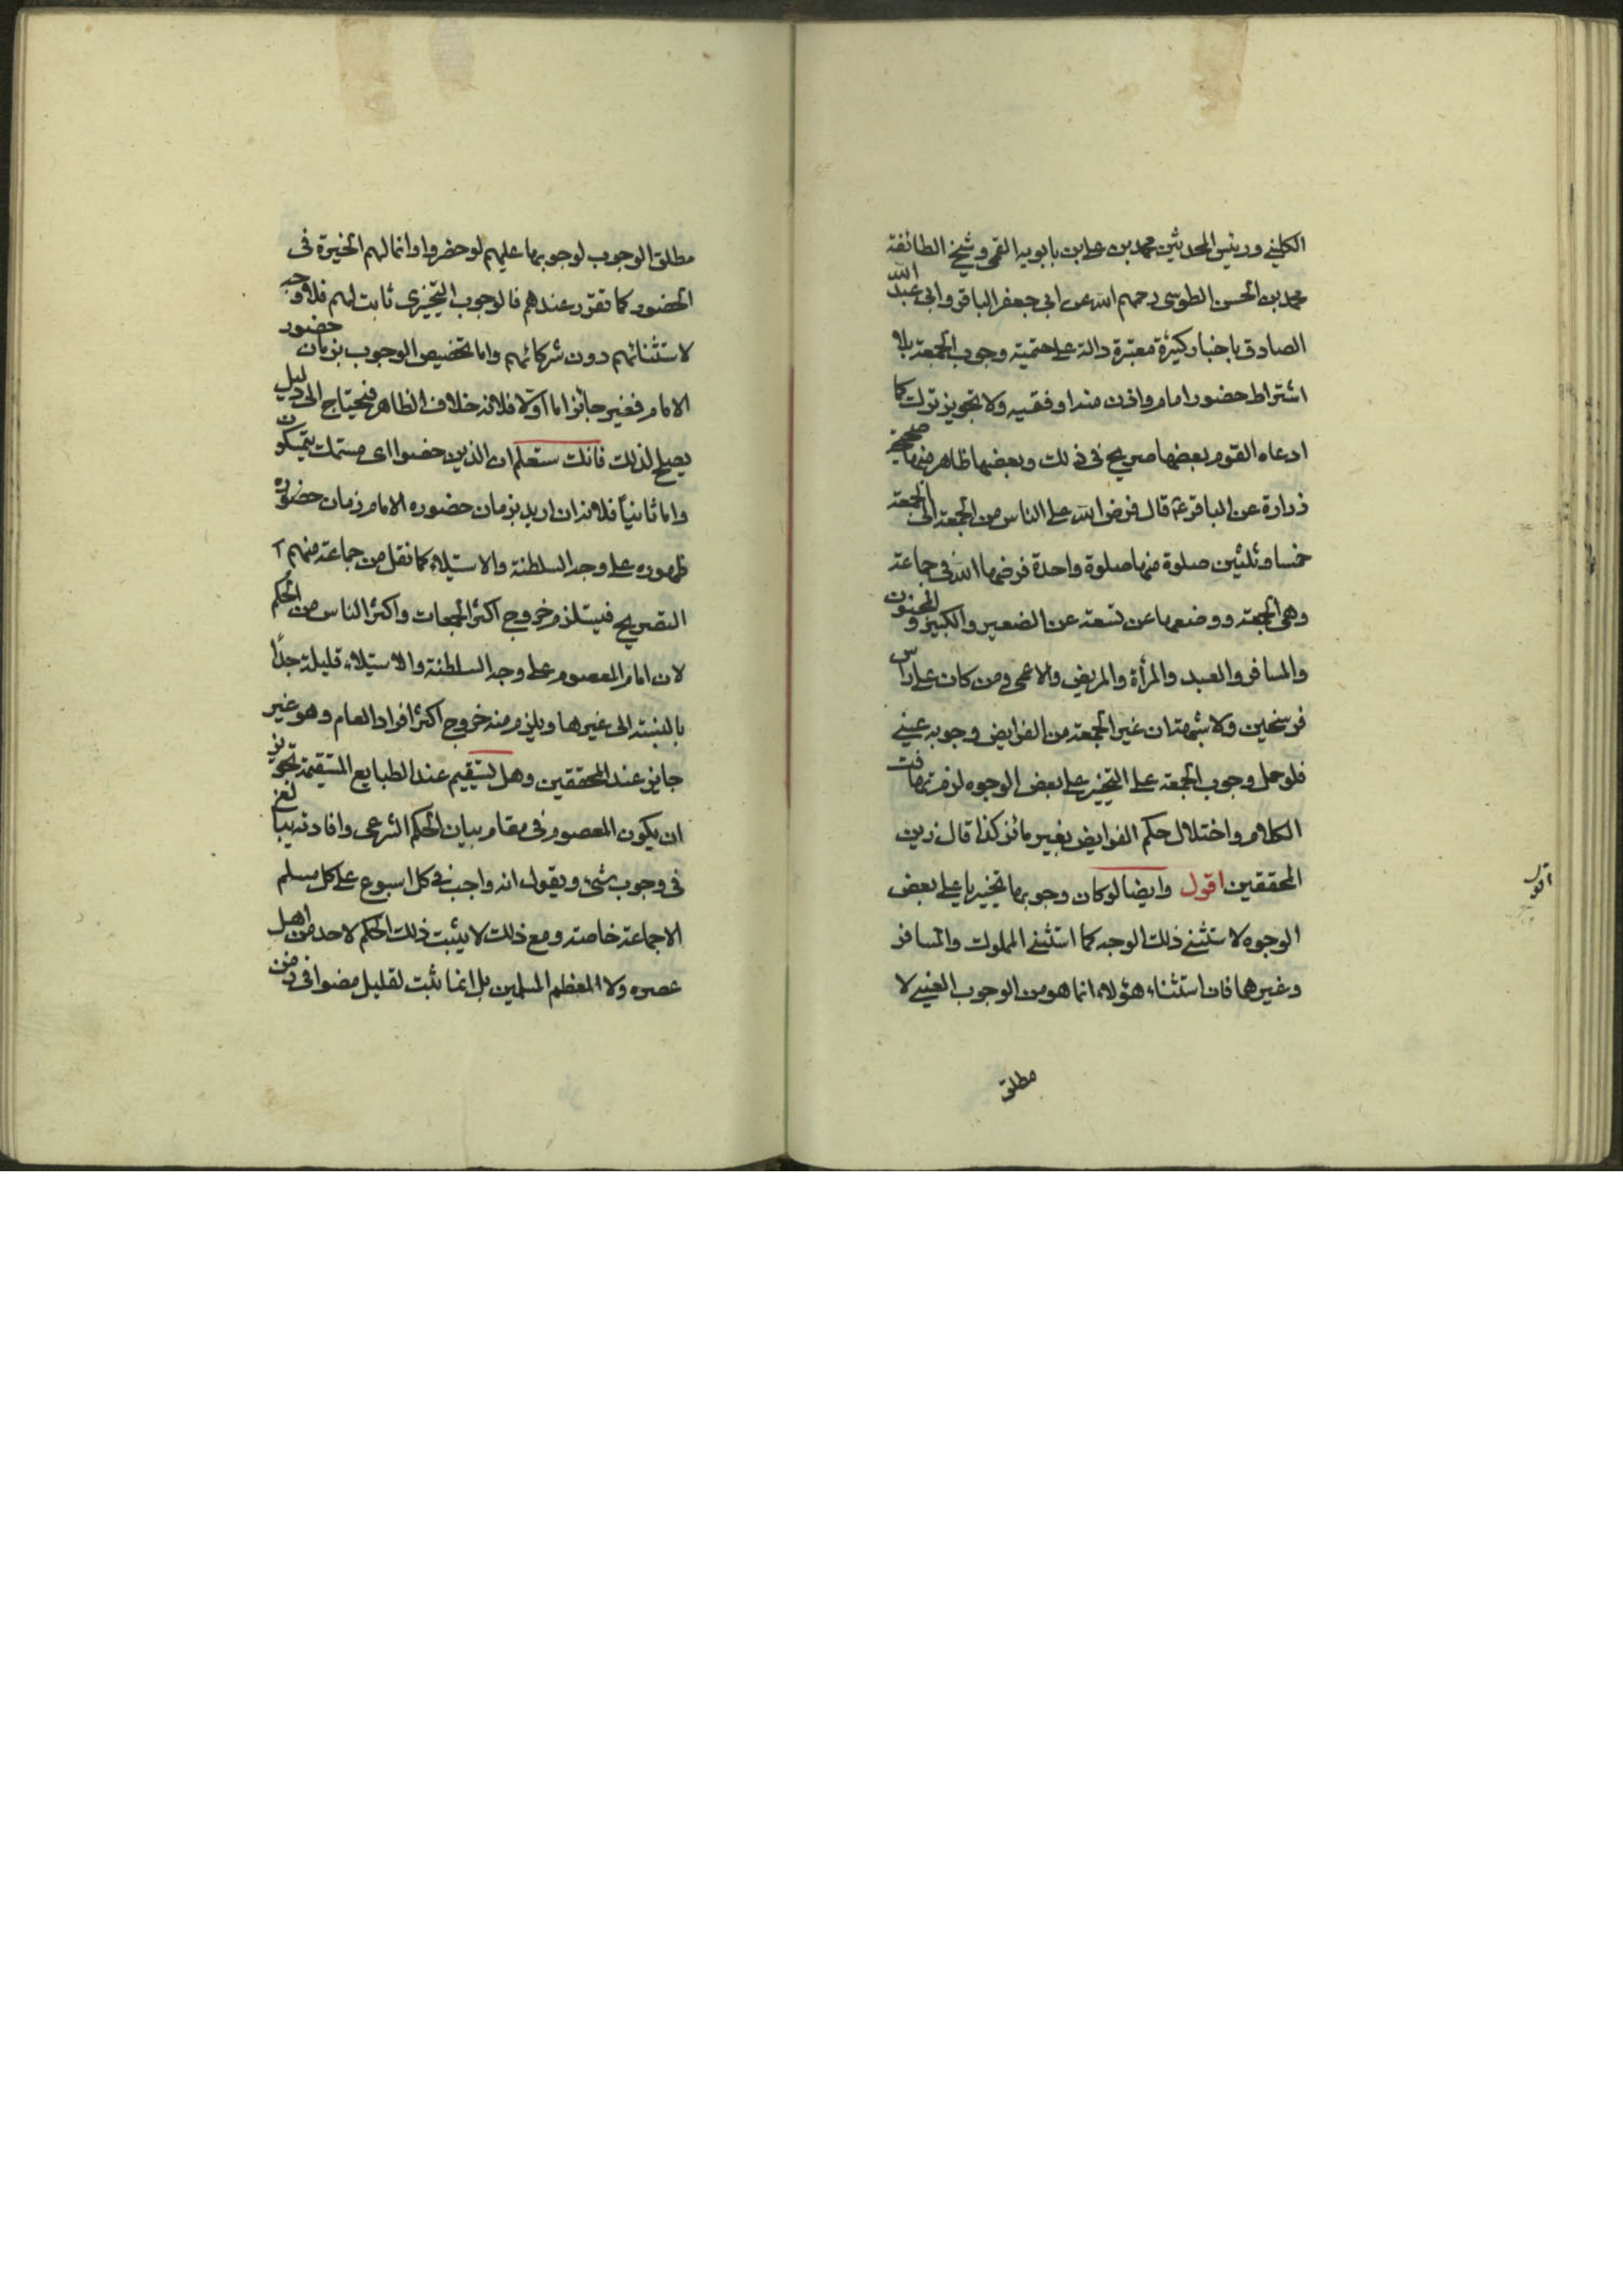 الكليني ورئيس المحدثين محمد بن علي بن بابويه القمي وشيخ الطائفة
محمد بن الحسن الطوسي رحمهم الله عن ابي جعفر الباقر وابي عبد الله
الصادق باخبار كثيرة معتبرة دالة على حتمية وجوب الجمعة بلا
اشتراط حضور امام واذن منه او فقيه ولا تجويز ترك كما
ادعاه القوم بعضها صريح في ذلك وبعضها ظاهر منها صحيحة
زرارة عن الباقر ع قال فرض الله على الناس من الجمعة الى الجمعة
خمسا وثلثين صلوة منها صلوة واحدة فرضها الله في جماعة
وهي الجمعة ووضعها عن تسعة عن الصغير والكبير والمجنون
والمسافر والعبد والمرأة والمريض والاعمى ومن كان على راس
فرسخين ولا شبهة ان غير الجمعة من الفرايض وجوبه عيني
فلو حمل وجوب الجمعة على التخيير على بعض الوجوه لزم تهافت
الكلام واختلال حكم الفرايض بغير مائز كذا قال زين
المحققين اقول وايضا لو كان وجوبها تخييريا على بعض
الوجوه لاستثنى ذلك الوجه كما استثنى المملوك والمسافر
وغيرهما فان استثناء هؤلاء انما هو من الوجوب العيني لا
مطلق
اقول
مطلق الوجوب لوجوبها عليهم لو حضروا وانما لهم الخيرة في
الحضور كما تقرر عندهم فالوجوب التخييري ثابت لهم فلا وجه
لاستثنائهم دون شركائهم واما تخصيص الوجوب بزمان حضور
الامام فغير جائز اما اولا فلانه خلاف الظاهر فيحتاج الى دليل
يصلح لذلك فانك ستعلم ان الذين خصوا اي مستمسك يتمسكون
واما ثانيا فلانه ان اريد بزمان حضوره الامام زمان حضوره
ظهوره على وجه السلطنة والاستيلاء كما نقل من جماعة منهم
التصريح فيستلزم خروج اكثر الجمعات واكثر الناس من الحكم
لان امام المعصوم على وجه السلطنة والاستيلاء قليلة جدًا
بالنسبة الى غيرها ويلزم منه خروج اكثر افراد العام وهو غير
جايز عند المحققين وهل يستقيم عند الطبايع المستقيمة تجويز
ان يكون المعصوم في مقام بيان الحكم الشرعي وافادته يبالغ
في وجوب شيء ويقول انه واجب في كل اسبوع على كل مسلم
الاجماعة خاصة ومع ذلك لا يثبت ذلك الحكم لاحد من اهل
عصره ولا المعظم المسلمين بل انما يثبت لقليل مضوا في زمن